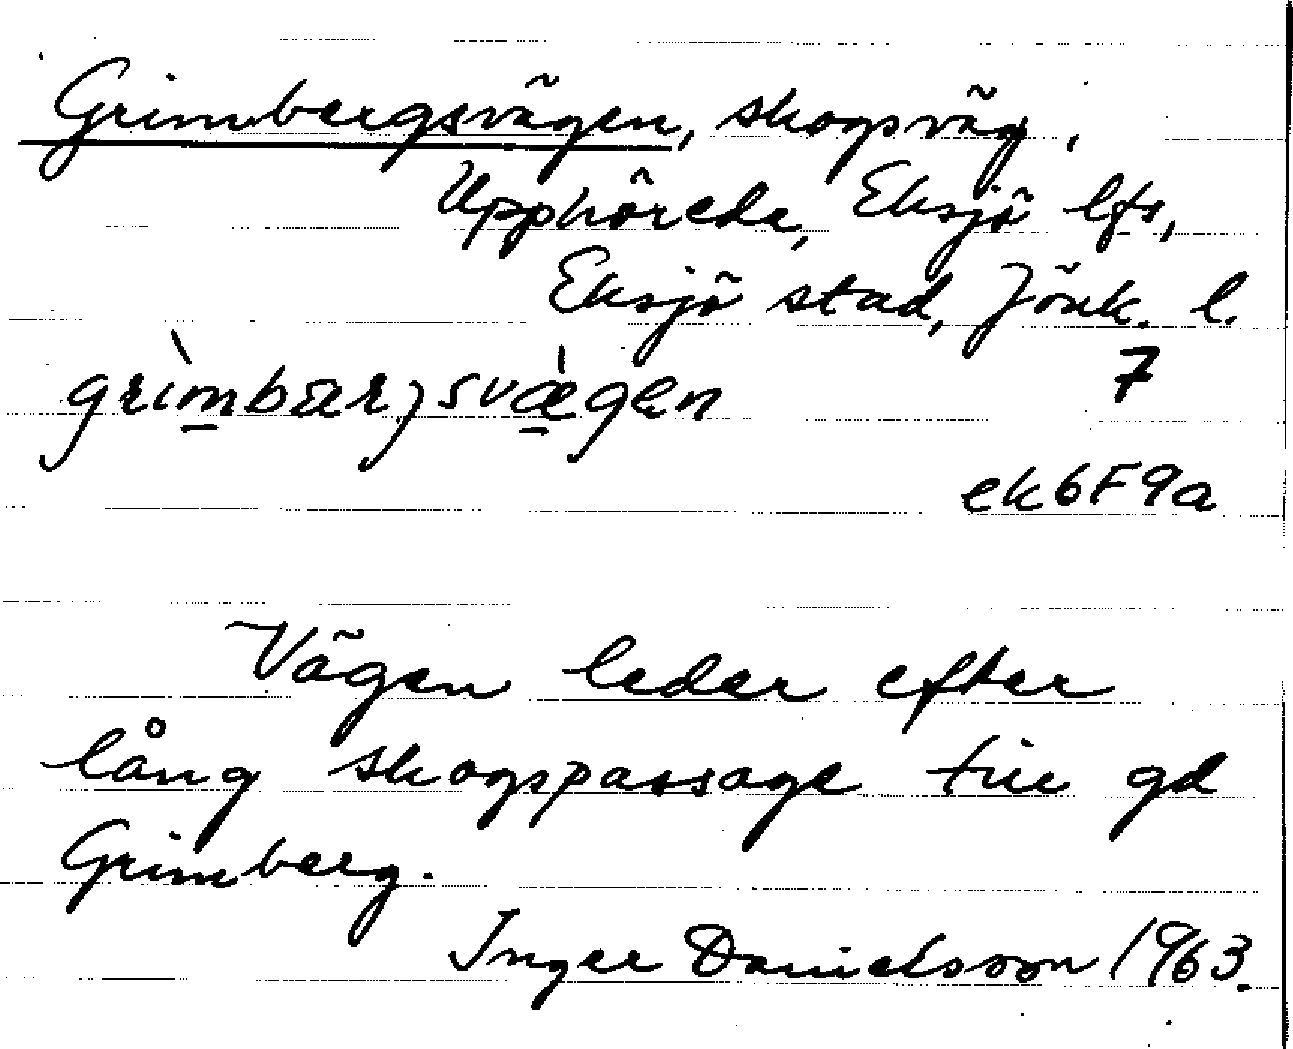 Grimbergsvägen, skogsväg,
Upphörede, Eksjö lfs,
Eksjö stad, Jönk. l.
grìmbærjsvægen
7
ek6F9a
Vägen leder efter
lång skogspassage till gd
Grimberg.
Inger Danielsson 1963.